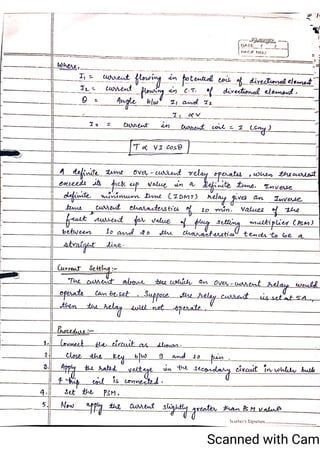 DATE
PAGE NO.:
Where,
I1 = current flowing in potential coil of directional element
I2 = current flowing in C.T. of directional element.
θ = Angle b/w I1 and I2
I1 ∝ V
I2 = current in current coil = I (say)
T ∝ VI cosθ
A definite time over-current relay operates, when the current
exceeds its pick up value in a definite time. Inverse
definite minimum time (IDMT) relay gives an Inverse
time current characteristics of 10 min. values of the
fault current for value of plug setting multiplier (PSM)
between 10 and 20 the characteristics tends to be a
straight line.
Current Setting:-
The current above the which an over-current relay would
operate can be set. Suppose the relay current is set at 5A,
then the relay will not operate.
Procedure:-
1. Connect the circuit as shown.
2. Close the key b/w 9 and 10 pin.
3. Apply the rated voltage in the secondary circuit in which bulb
& trip coil is connected.
4. Set the PSM.
5. Now apply the current slightly greater than PSM value
Teacher's Signature
Scanned with Cam